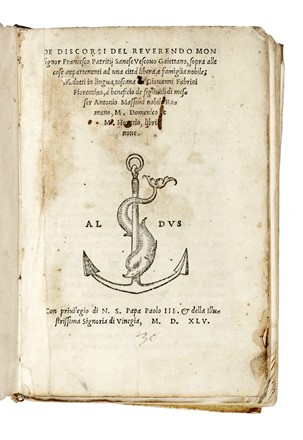 DE DISCORSI DEL REVERENDO MON
signor Francesco Patritij Sanese Vescovo Gaiettano, sopra alle
cose appartenenti ad una città libera, e famiglia nobile;
tradotti in lingua toscana da Giovanni Fabrini
Fiorentino, à beneficio de figliuoli di mes
ser Antonio Massimi nobile Ro
mano, M. Domenico
M. Horatio, libri
noue.
AL DVS
Con priuilegio di N. S. Papa Paolo III. & della Illu
strissima Signoria di Vinegia, M. D. XLV.